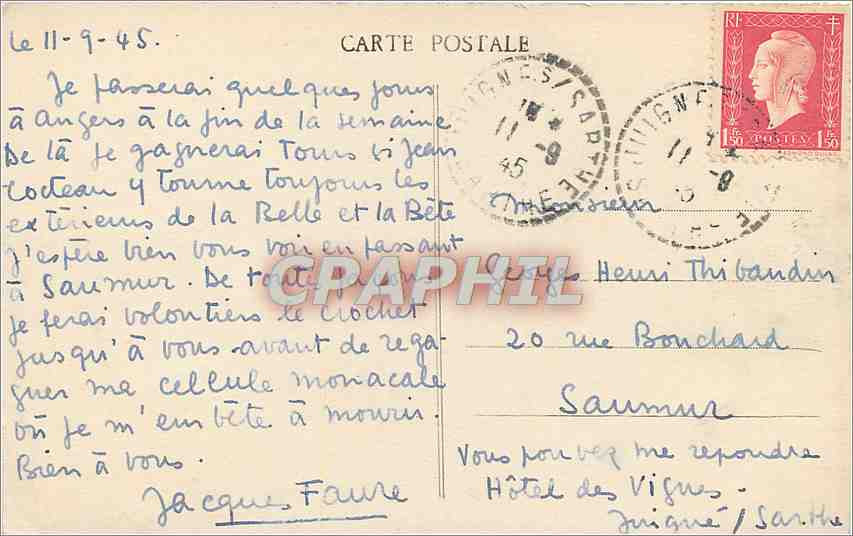 le 11-9-45.
CARTE POSTALE
Je passerai quelques jours
à Angers à la fin de la semaine
De là je gagnerai Tours si Jean
Cocteau y tourne toujours les
extérieurs de la Belle et la Bête
J'espère bien vous voir en passant
à Saumur. De toute façons
je ferai volontiers le crochet
jusqu'à vous avant de rega-
gner ma cellule monacale
où je m'embête à mourir.
Bien à vous.
Jacques Faure
RF
1F50
POSTES
1F50
SOUVIGNE S/SARTHE
11-9
45
SARTHE
11-9
Monsieur
Georges Henri Thibaudin
20 rue Bouchard
Saumur
Vous pouvez me repondre
Hôtel des Vignes.
Juigné / Sarthe
CPAPHIL